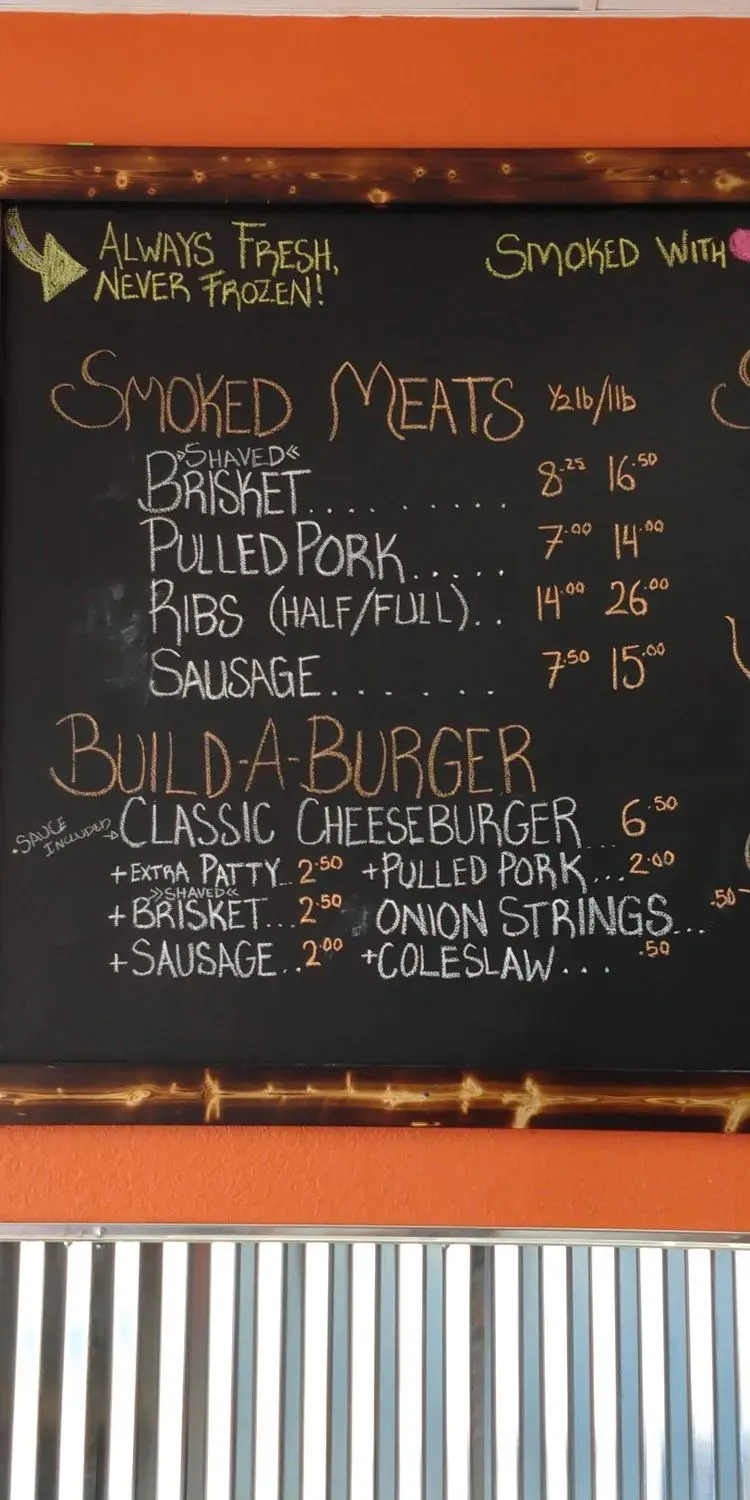 ALWAYS FRESH,
NEVER FROZEN!
SMOKED WITH
SMOKED MEATS ½lb/1lb
»SHAVED«
BRISKET.......... 8.25 16.50
PULLED PORK..... 7.00 14.00
RIBS (HALF/FULL).. 14.00 26.00
SAUSAGE....... 7.50 15.00
BUILD-A-BURGER
.SAUCE INCLUDED→ CLASSIC CHEESEBURGER... 6.50
+EXTRA PATTY.. 2.50 +PULLED PORK... 2.00
»SHAVED«
+BRISKET... 2.50 ONION STRINGS... .50
+SAUSAGE.. 2.00 +COLESLAW... .50